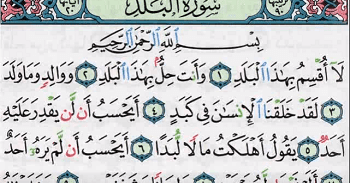 سورة البلد
بِسْمِ ٱللَّهِ ٱلرَّحْمَٰنِ ٱلرَّحِيمِ
لَآ أُقْسِمُ بِهَٰذَا ٱلْبَلَدِ ١ وَأَنتَ حِلٌّۢ بِهَٰذَا ٱلْبَلَدِ ٢ وَوَالِدٍ وَمَا وَلَدَ
٣ لَقَدْ خَلَقْنَا ٱلْإِنسَٰنَ فِي كَبَدٍ ٤ أَيَحْسَبُ أَن لَّن يَقْدِرَ عَلَيْهِ
أَحَدٌ ٥ يَقُولُ أَهْلَكْتُ مَالًا لُّبَدًا ٦ أَيَحْسَبُ أَن لَّمْ يَرَهُۥٓ أَحَدٌ